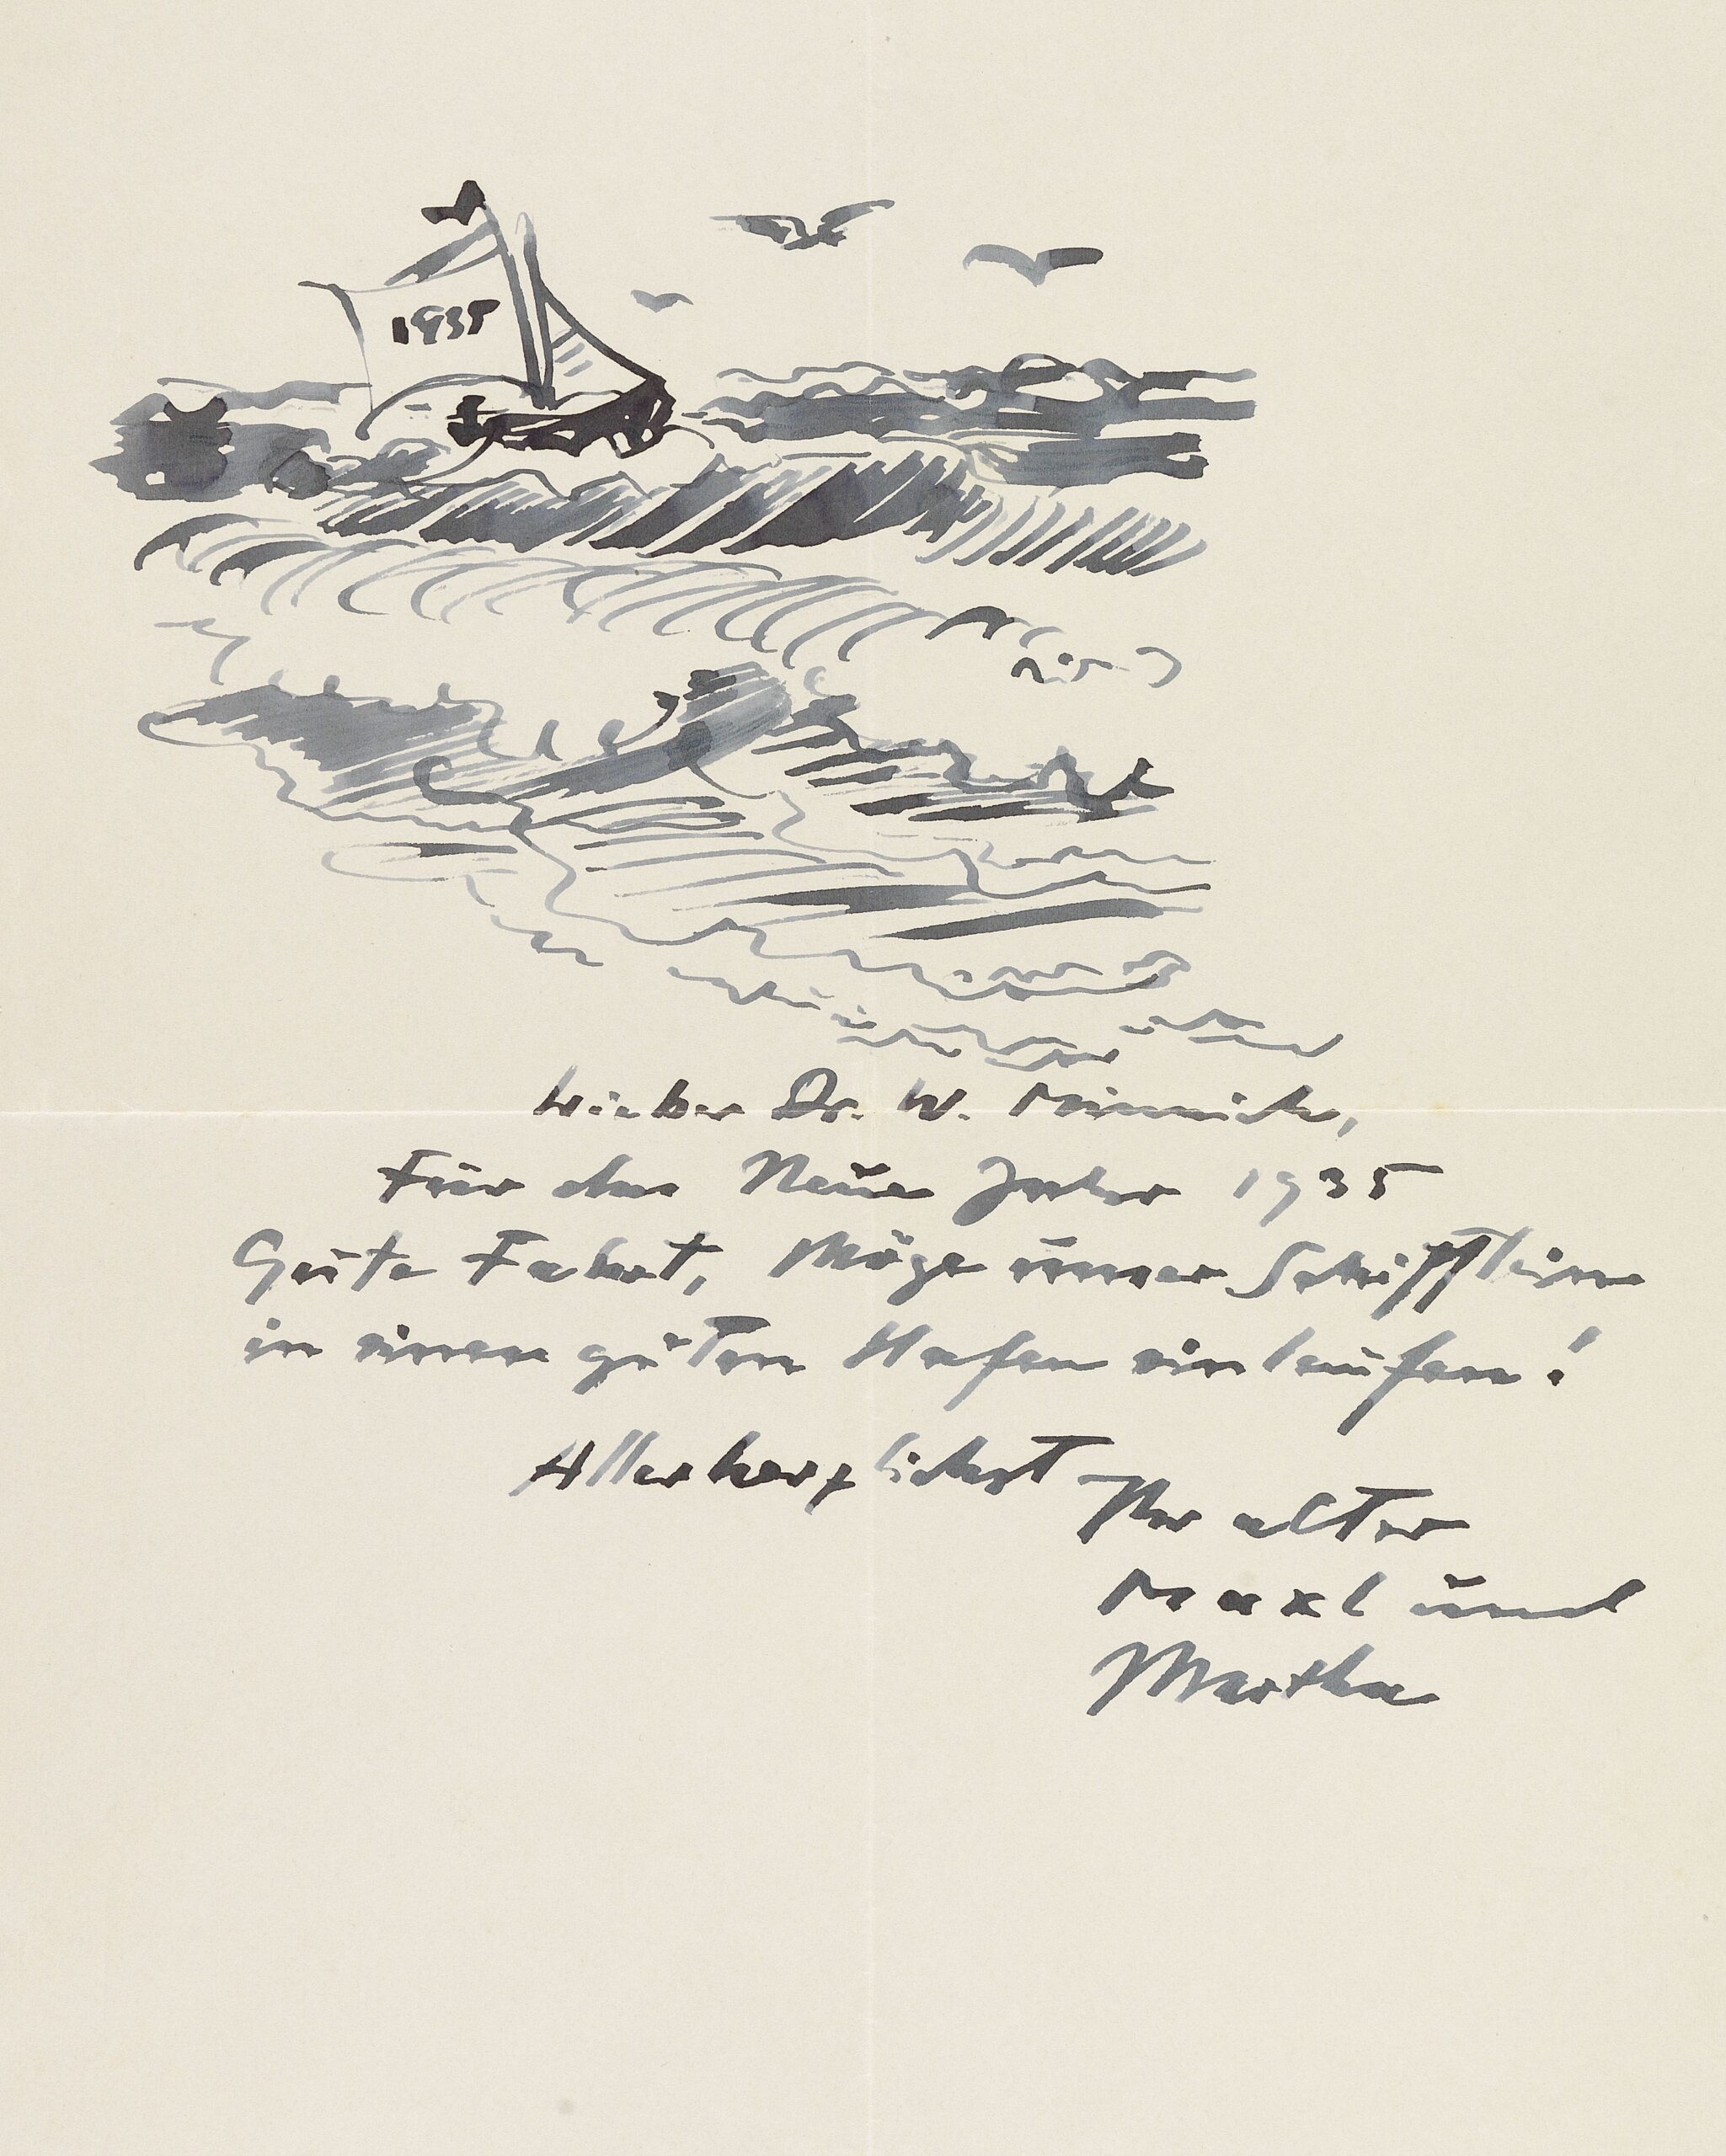 1935
Lieber Dr. W. Minnich,
Für das Neue Jahr 1935
Gute Fahrt, Möge unser Schifflein
in einen guten Hafen einlaufen!
Allerherzlichst
Ihr alter
Maxl und
Martha